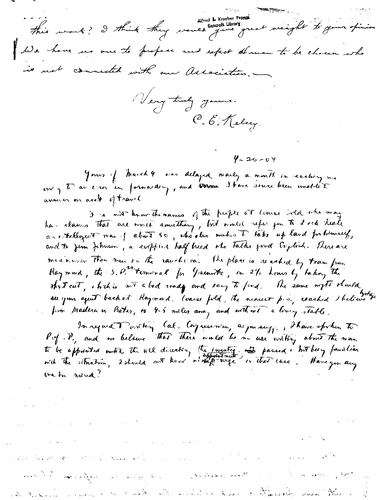 Alfred L Kroeber Papers
Bancroft Library
this work? I think they would give great weight to your opinion
We have no one to propose and expect a man to be chosen who
is not connected with our Association.
Very truly yours.
C. E. Kelsey
4-20-04
Yours of March 9 was delayed nearly a month in reaching me
owing to an error in forwarding, and I have since been unable to
answer on acct of travel
I do not know the names of the people at Coarse Gold who may
have claims that are worth something, but would refer you to
an intelligent man of about 50 who also makes to take up land for himself,
and to Jim Johnson, a half breed who talks good English. There are
men in the rancheria. The place is reached by team from
Raymond, the S.P. terminal for Yosemite, in 2½ hours by taking the
short cut, which is not a bad road and easy to find. The same
as your agent back at Raymond. Coarse Gold, the nearest place, reached I believe
from Madera or Bates, is 4.5 miles away and without a livery stable.
In regard to writing Cal. Congressmen, I have spoken to
Prof. P., and we believe that there would be no use writing about the man
to be appointed until the bill directing the inquiry is passed. Not being familiar
with the situation, I should not have appointment to urge in that case. Have you any
one in mind?